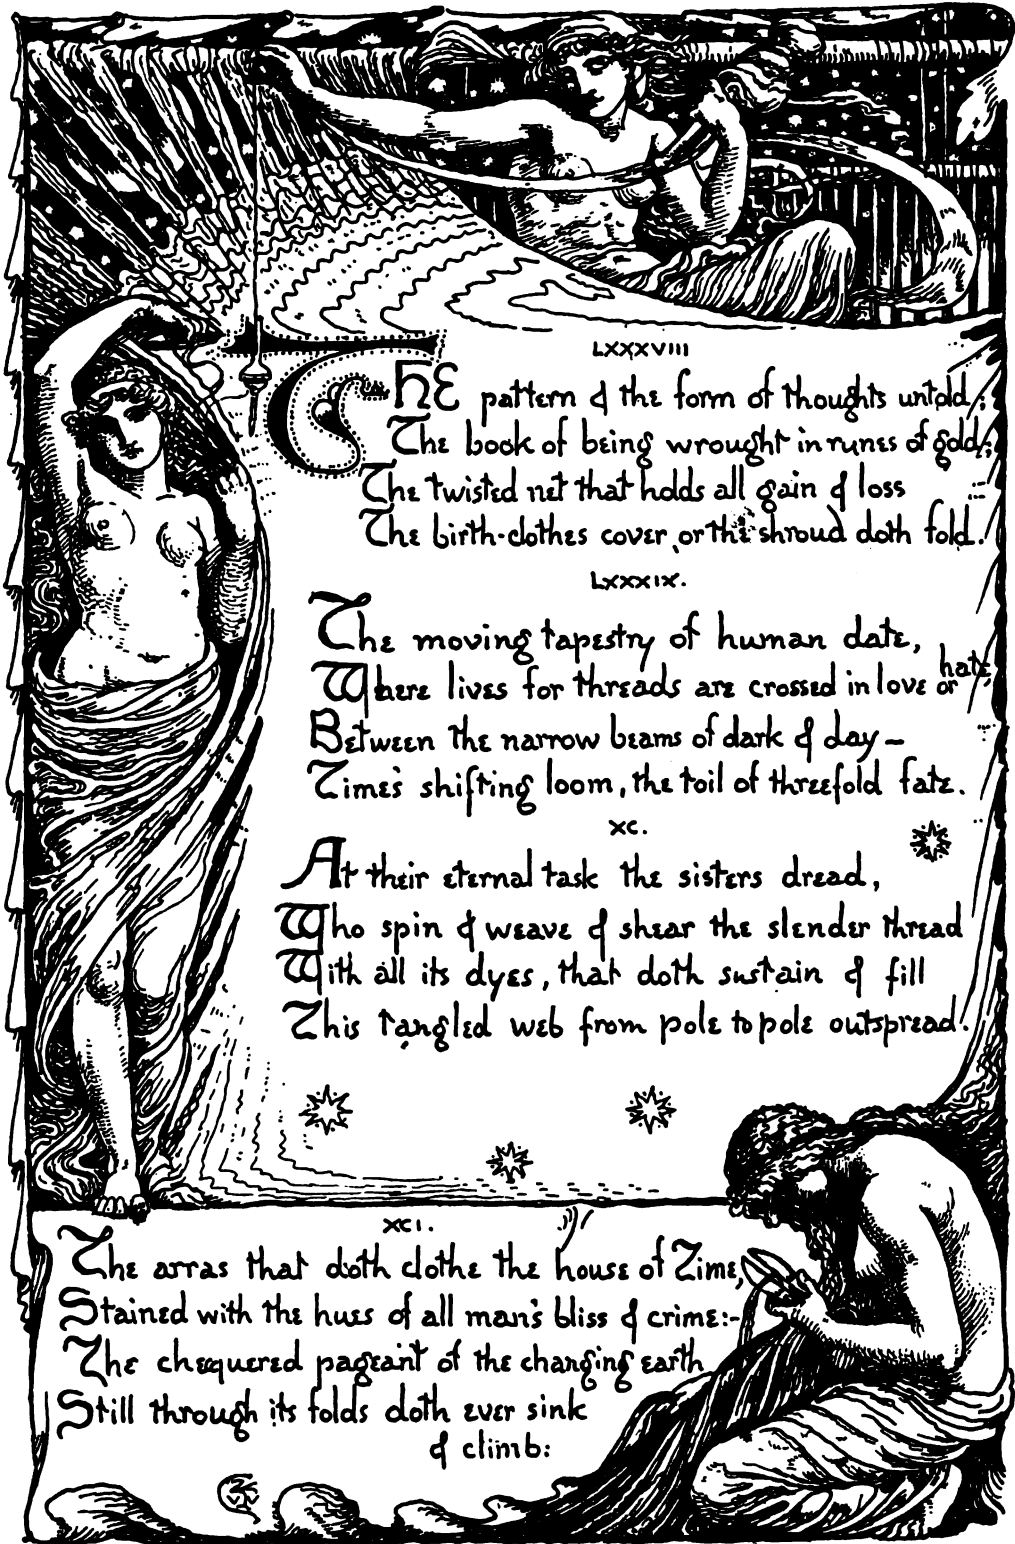 LXXXVIII
THE pattern & the form of thoughts untold,:
The book of being wrought in runes of gold,:
The twisted net that holds all gain & loss
The birth-clothes cover, or the shroud doth fold.
LXXXIX.
The moving tapestry of human date,
Where lives for threads are crossed in love or hate,
Between the narrow beams of dark & day—
Time's shifting loom, the toil of threefold fate.
XC.
At their eternal task the sisters dread,
Who spin & weave & shear the slender thread
With all its dyes, that doth sustain & fill
This tangled web from pole to pole outspread.
XCI.
The arras that doth clothe the house of Time,
Stained with the hues of all man's bliss & crime:-
The chequered pageant of the changing earth
Still through its folds doth ever sink
& climb: